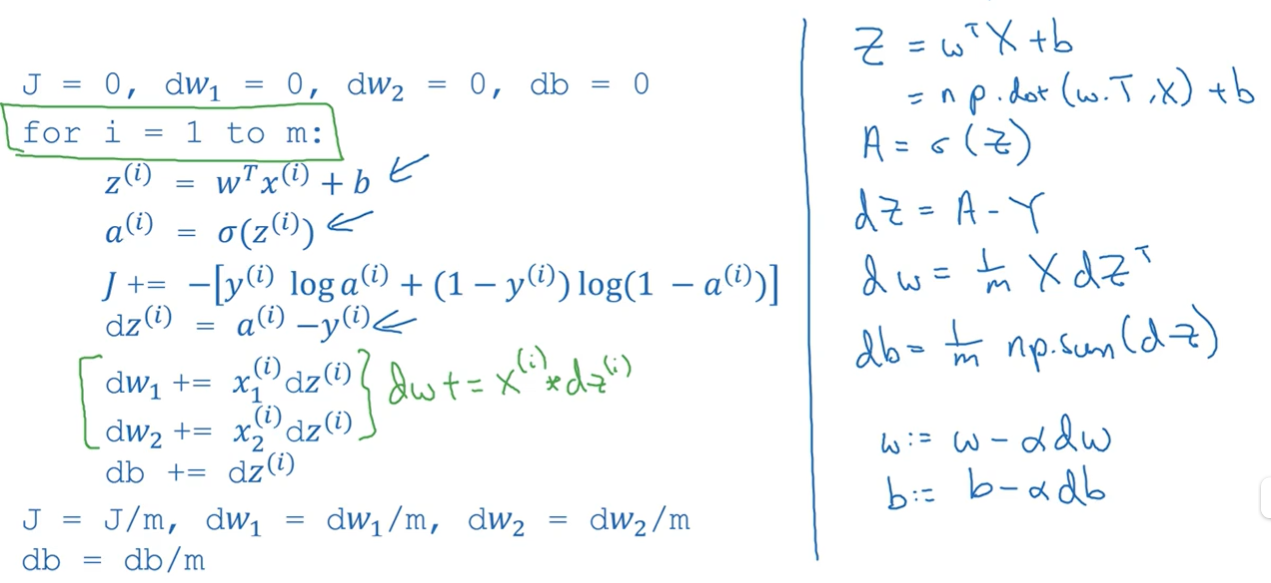 J = 0, dw₁ = 0, dw₂ = 0, db = 0
for i = 1 to m:
z⁽ⁱ⁾ = wᵀx⁽ⁱ⁾ + b ←
a⁽ⁱ⁾ = σ(z⁽ⁱ⁾) ←
J += −[y⁽ⁱ⁾ log a⁽ⁱ⁾ + (1 − y⁽ⁱ⁾) log(1 − a⁽ⁱ⁾)]
dz⁽ⁱ⁾ = a⁽ⁱ⁾ −y⁽ⁱ⁾ ←
dw₁ += x₁⁽ⁱ⁾dz⁽ⁱ⁾
dw₂ += x₂⁽ⁱ⁾dz⁽ⁱ⁾
dw += x⁽ⁱ⁾ * dz⁽ⁱ⁾
db += dz⁽ⁱ⁾
J = J/m, dw₁ = dw₁/m, dw₂ = dw₂/m
db = db/m
Z = wᵀX + b
= np.dot(w.T, X) + b
A = σ(Z)
dZ = A − Y
dw = 1/m X dZᵀ
db = 1/m np.sum(dZ)
w := w − αdw
b := b − αdb